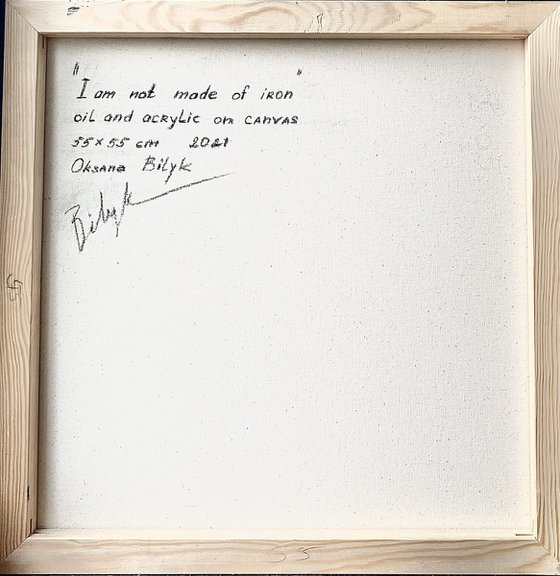 "I am not made of iron"
oil and acrylic on canvas
55x55 cm 2021
Oksana Bilyk
Bilyk
55